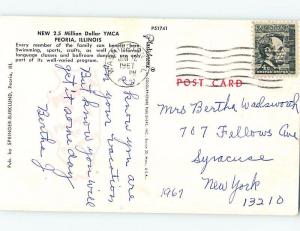 NEW 2.5 Million Dollar YMCA
PEORIA, ILLINOIS
Every member of the family can benefit here.
Swimming, sports, crafts, as well as dancing
and ballroom dancing, etc. are only
part of its well-varied program.
P51741
1967
I know you are
on your vacation
But know you will
get it some day
Bertha J.
Pub. by SPRINGER-BURKLUND, Peoria, Ill.
POST CARD
Mrs Bertha Wadsworth
707 Fellows Ave
Syracuse
New York
13210
1967